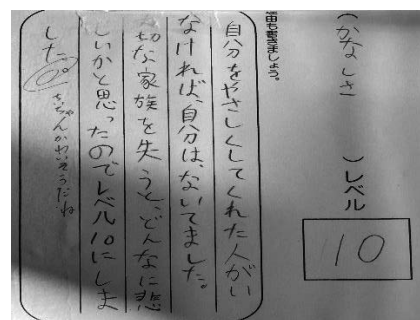 (かなしさ　)レベル
10
理由も書きましょう。
自分をやさしくしてくれた人がい
なければ、自分は、ないてました。
切な家族を失うと、どんなに悲
しいかと思ったのでレベル10にしま
した。
ちぃちゃんかわいそうだね